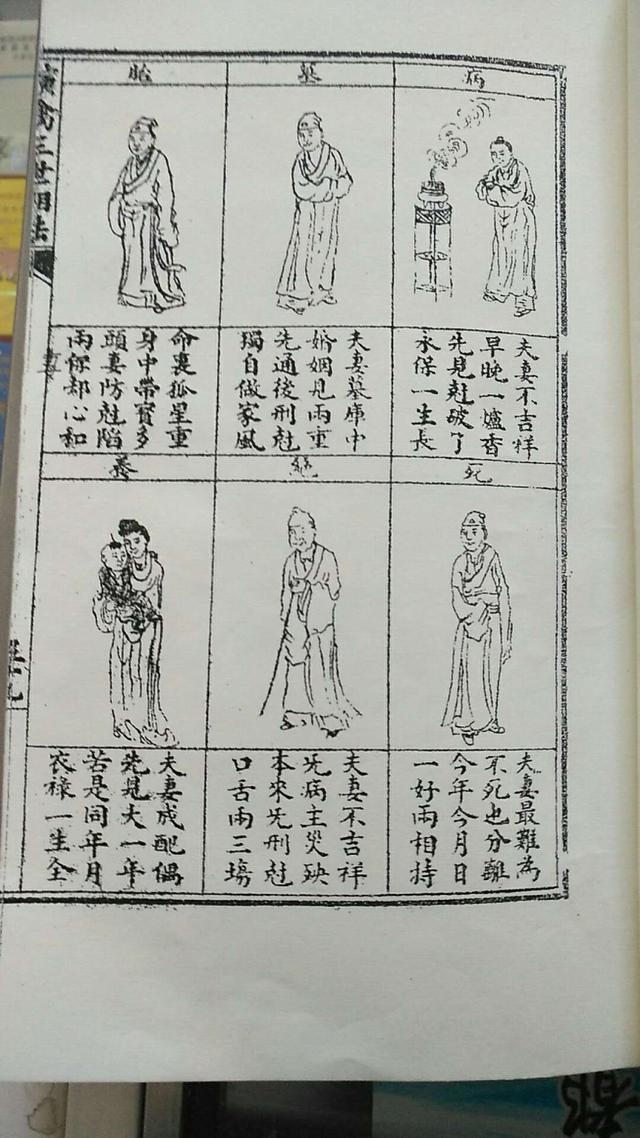 病
夫妻不吉祥
早晚一爐香
先見尅破了
永保一生長
墓
夫妻墓庫中
婚姻見兩重
先通後刑尅
獨自做家風
胎
命裏孤星重
身中帶寳多
頭妻防尅陷
兩保却心和
死
夫妻最難為
不死也分離
今年今月日
一好兩相持
絕
夫妻不吉祥
旡病主災殃
本來旡刑尅
口舌兩三塲
養
夫妻成配偶
先見大一年
若是同年月
衣祿一生全
演禽三世相法
都